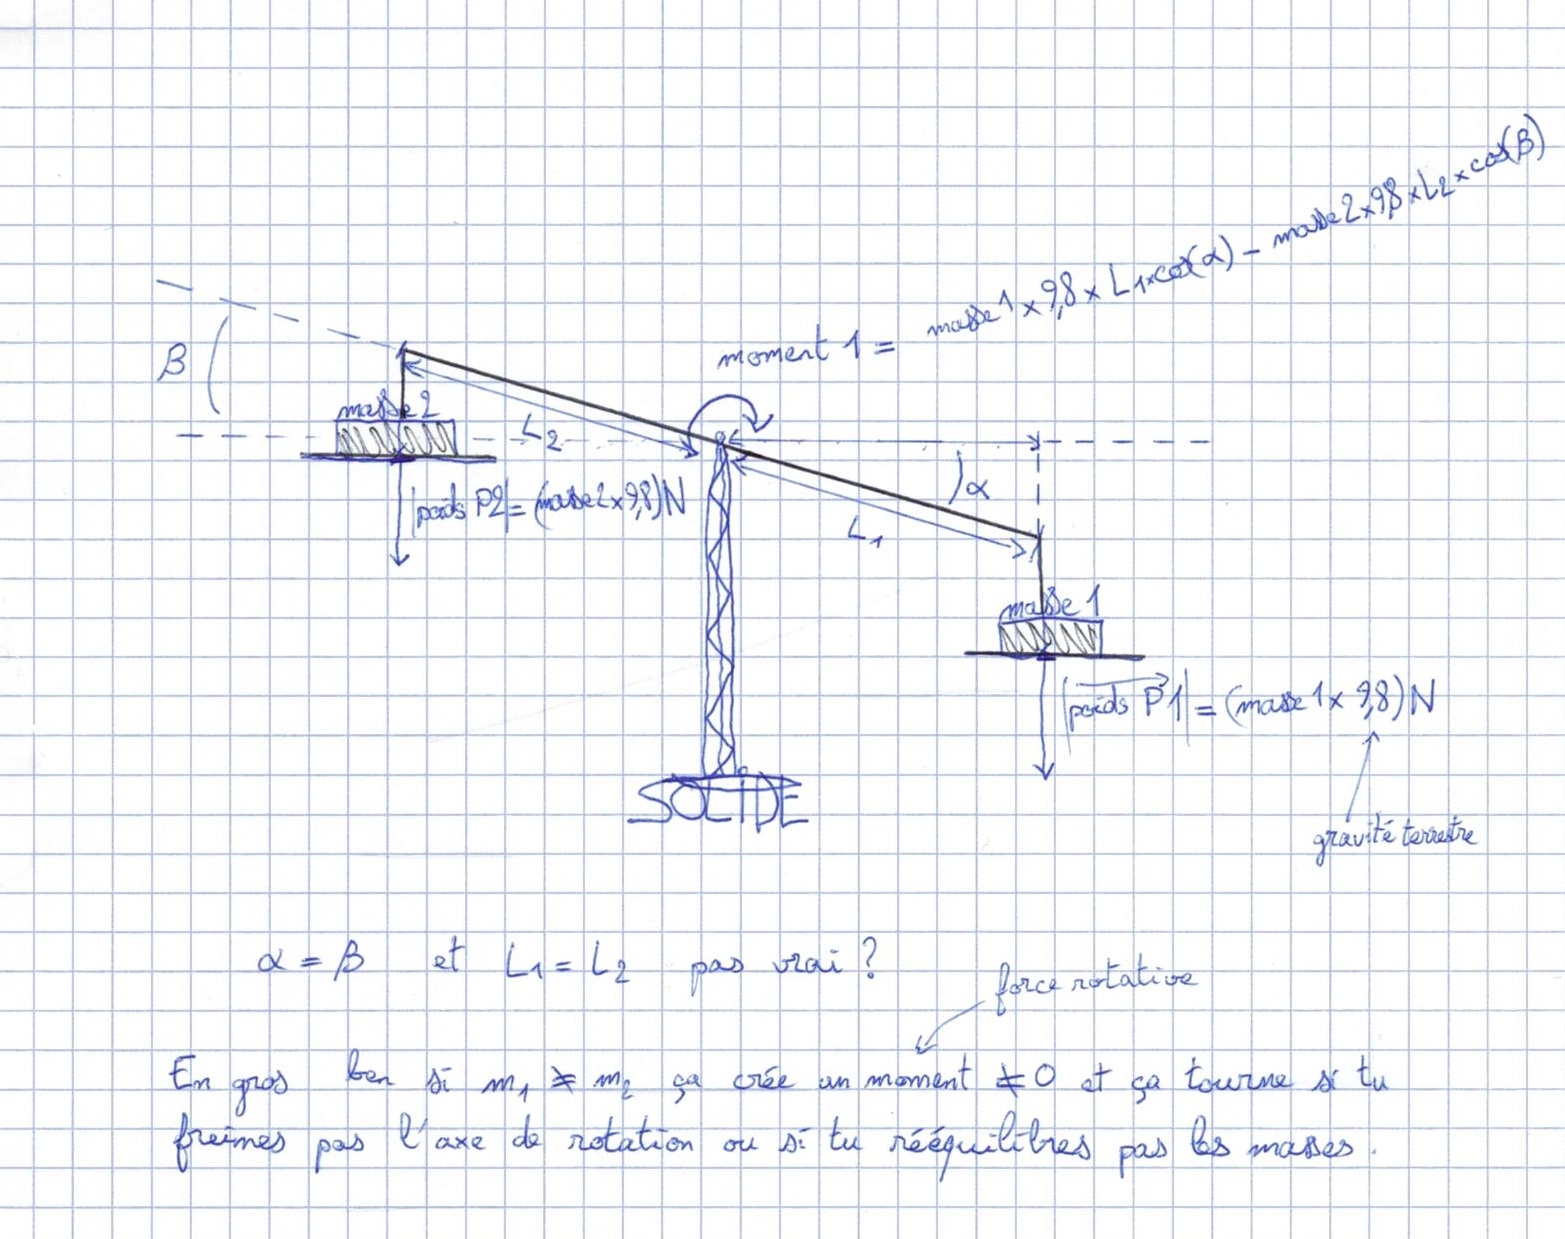 moment 1 = masse 1 × 9,8 × L1 × cos(α) - masse 2 × 9,8 × L2 × cos(β)
β
masse 2
L2
α
|poids P2| = (masse 2 × 9,8) N
L1
masse 1
|poids P1| = (masse 1 × 9,8) N
SOLIDE
gravité terrestre
α = β et L1 = L2 pas vrai ?
force rotative
En gros ben si m1 ≠ m2 ça crée un moment ≠ 0 et ça tourne si tu
freines pas l'axe de rotation ou si tu rééquilibres pas les masses.